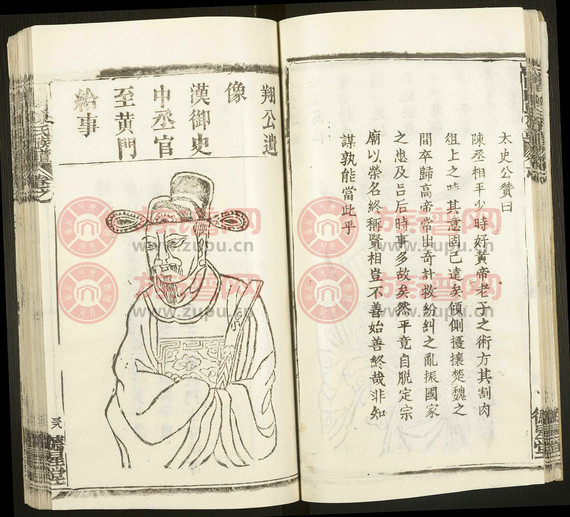 太史公贊曰
陳丞相平少時好黃帝老子之術方其割肉
俎上之時其意固已遠矣傾側擾攘楚魏之
間卒歸高帝常出奇計救紛糾之亂振國家
之患及呂后時事多故矣然平竟自脫定宗
廟以榮名終稱賢相豈不善始善終哉非知
謀孰能當此乎
翔公遺
像
漢御史
中丞官
至黃門
給事
族普网
www.zupu.cn
族普网
www.zupu.cn
族普网
www.zupu.cn
族普网
www.zupu.cn